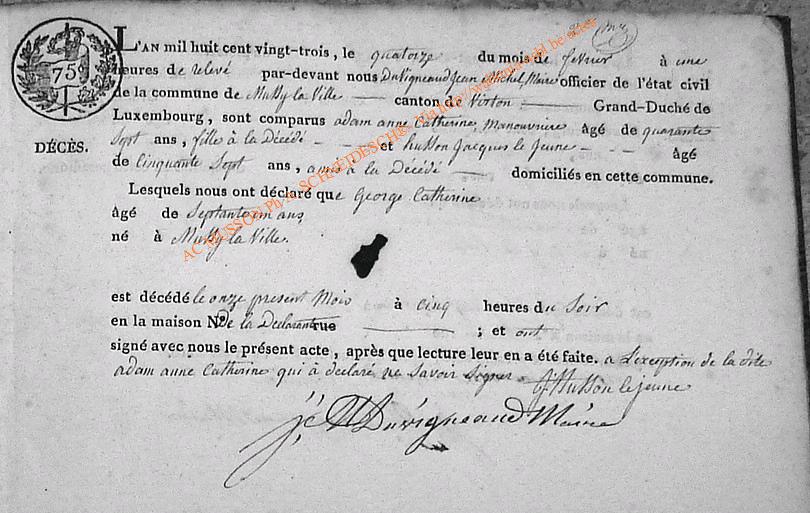 75
DÉCÈS.
L'AN mil huit cent vingt-trois, le quatorze du mois de fevrier à une
heures de relevé par-devant nous Duvigneaud Jean Michel Maire officier de l'état civil
de la commune de Mussy la Ville canton de Virton Grand-Duché de
Luxembourg, sont comparus adam anne Catherine, Manouvriere âgé de quarante
Sept ans, fille à la Décédé et husson Jacques le Jeune âgé
de Cinquante Sept ans, amis à la Décédé domiciliés en cette commune.
Lesquels nous ont déclaré que George Catherine
âgé de Septante un ans,
né à Mussy la Ville.
est décédé le onze present Mois à cinq heures du Soir
en la maison N.º de la Declarante rue ; et ont
signé avec nous le présent acte, après que lecture leur en a été faite. a L'exception de la dite
adam anne Catherine qui à déclaré ne Savoir Signer. J Husson le jeune
Duvigneaud Maire